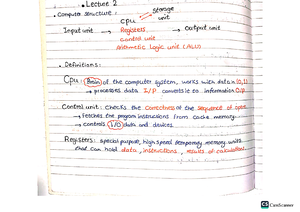 • Lecture 2
• Computer structure :
storage unit
Input unit → CPU → output unit
Registers
control unit
Arithmetic Logic unit (ALU)
• Definitions:
CPU : Brain of the computer system, works with data in (0,1)
→ processes data I/P converts it to information O/P
Control unit: Checks the correctness of the sequence of oper.
→ Fetches the program instructions from cache memory.
→ controls I/O data and devices.
Registers: special purpose, high speed temporary memory units
that can hold data, instructions, results of calculation.
CS CamScanner